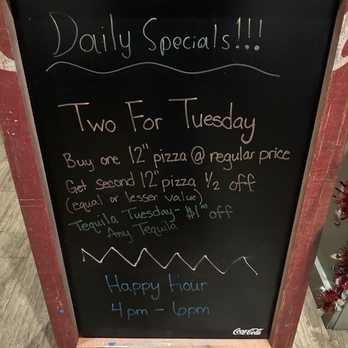 Daily Specials!!!
Two For Tuesday
Buy one 12" pizza @ regular price
Get second 12" pizza 1/2 off
(equal or lesser value)
Tequila Tuesday - $1.00 off
Any Tequila
Happy Hour
4pm - 6pm
Coca-Cola